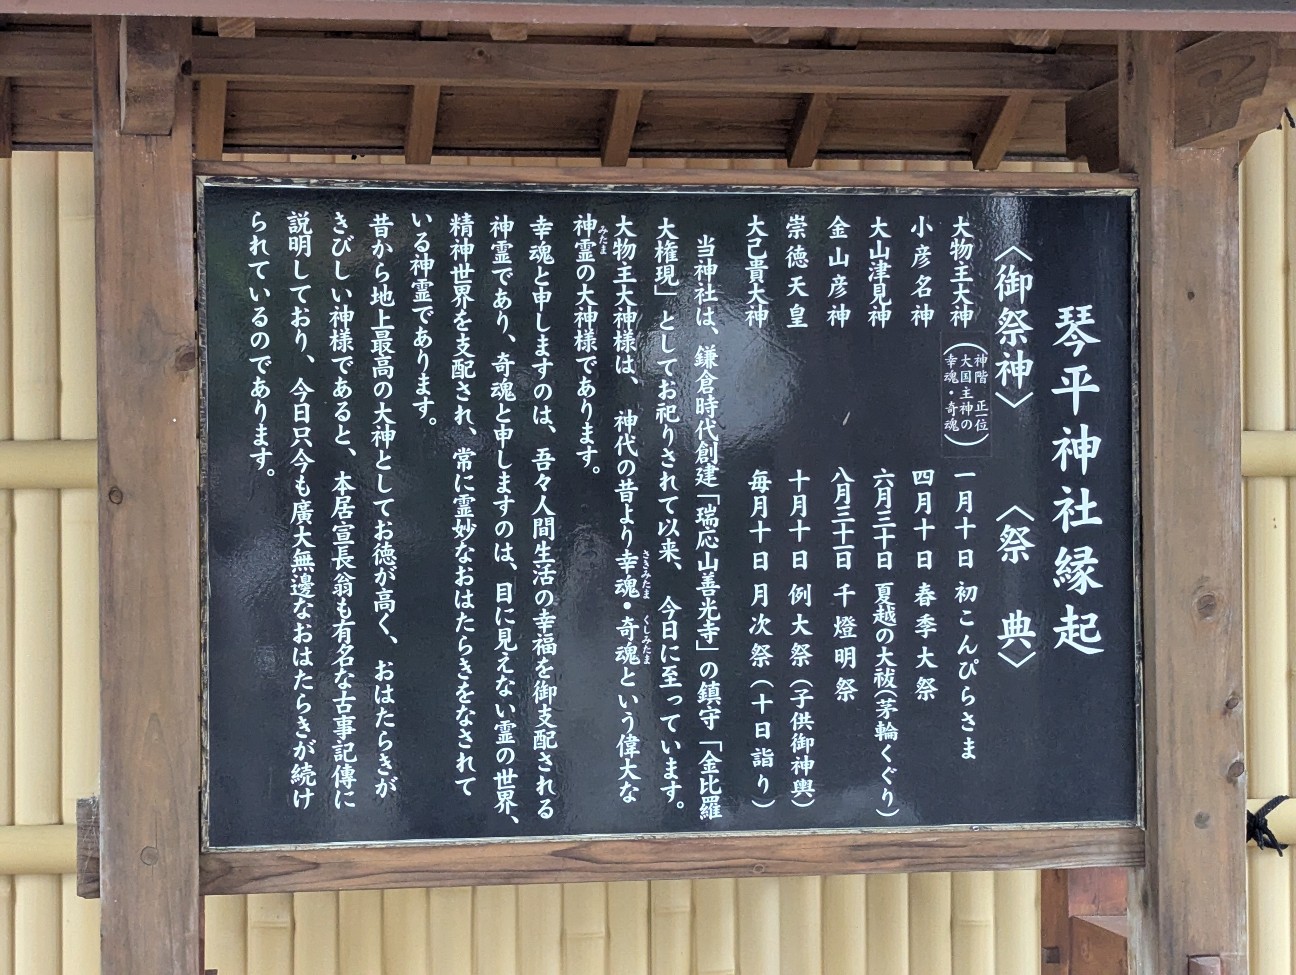 琴平神社縁起
〈御祭神〉　〈祭　典〉
大物主大神（神階　正一位
大国主神の
幸魂・奇魂）　一月十日　初こんぴらさま
小彦名神　四月十日　春季大祭
大山津見神　六月三十日　夏越の大祓（茅輪くぐり）
金山彦神　八月三十一日　千燈明祭
崇徳天皇　十月十日　例大祭（子供御神輿）
大己貴大神　毎月十日　月次祭（十日詣り）
当神社は、鎌倉時代創建「瑞応山善光寺」の鎮守「金比羅
大権現」としてお祀りされて以来、今日に至っています。
大物主大神様は、神代の昔より幸魂（さきみたま）・奇魂（くしみたま）という偉大な
神霊（みたま）の大神様であります。
幸魂と申しますのは、吾々人間生活の幸福を御支配される
神霊であり、奇魂と申しますのは、目に見えない霊の世界、
精神世界を支配され、常に霊妙なおはたらきをなされて
いる神霊であります。
昔から地上最高の大神としてお徳が高く、おはたらきが
きびしい神様であると、本居宣長翁も有名な古事記傳に
説明しており、今日只今も廣大無邊なおはたらきが続け
られているのであります。